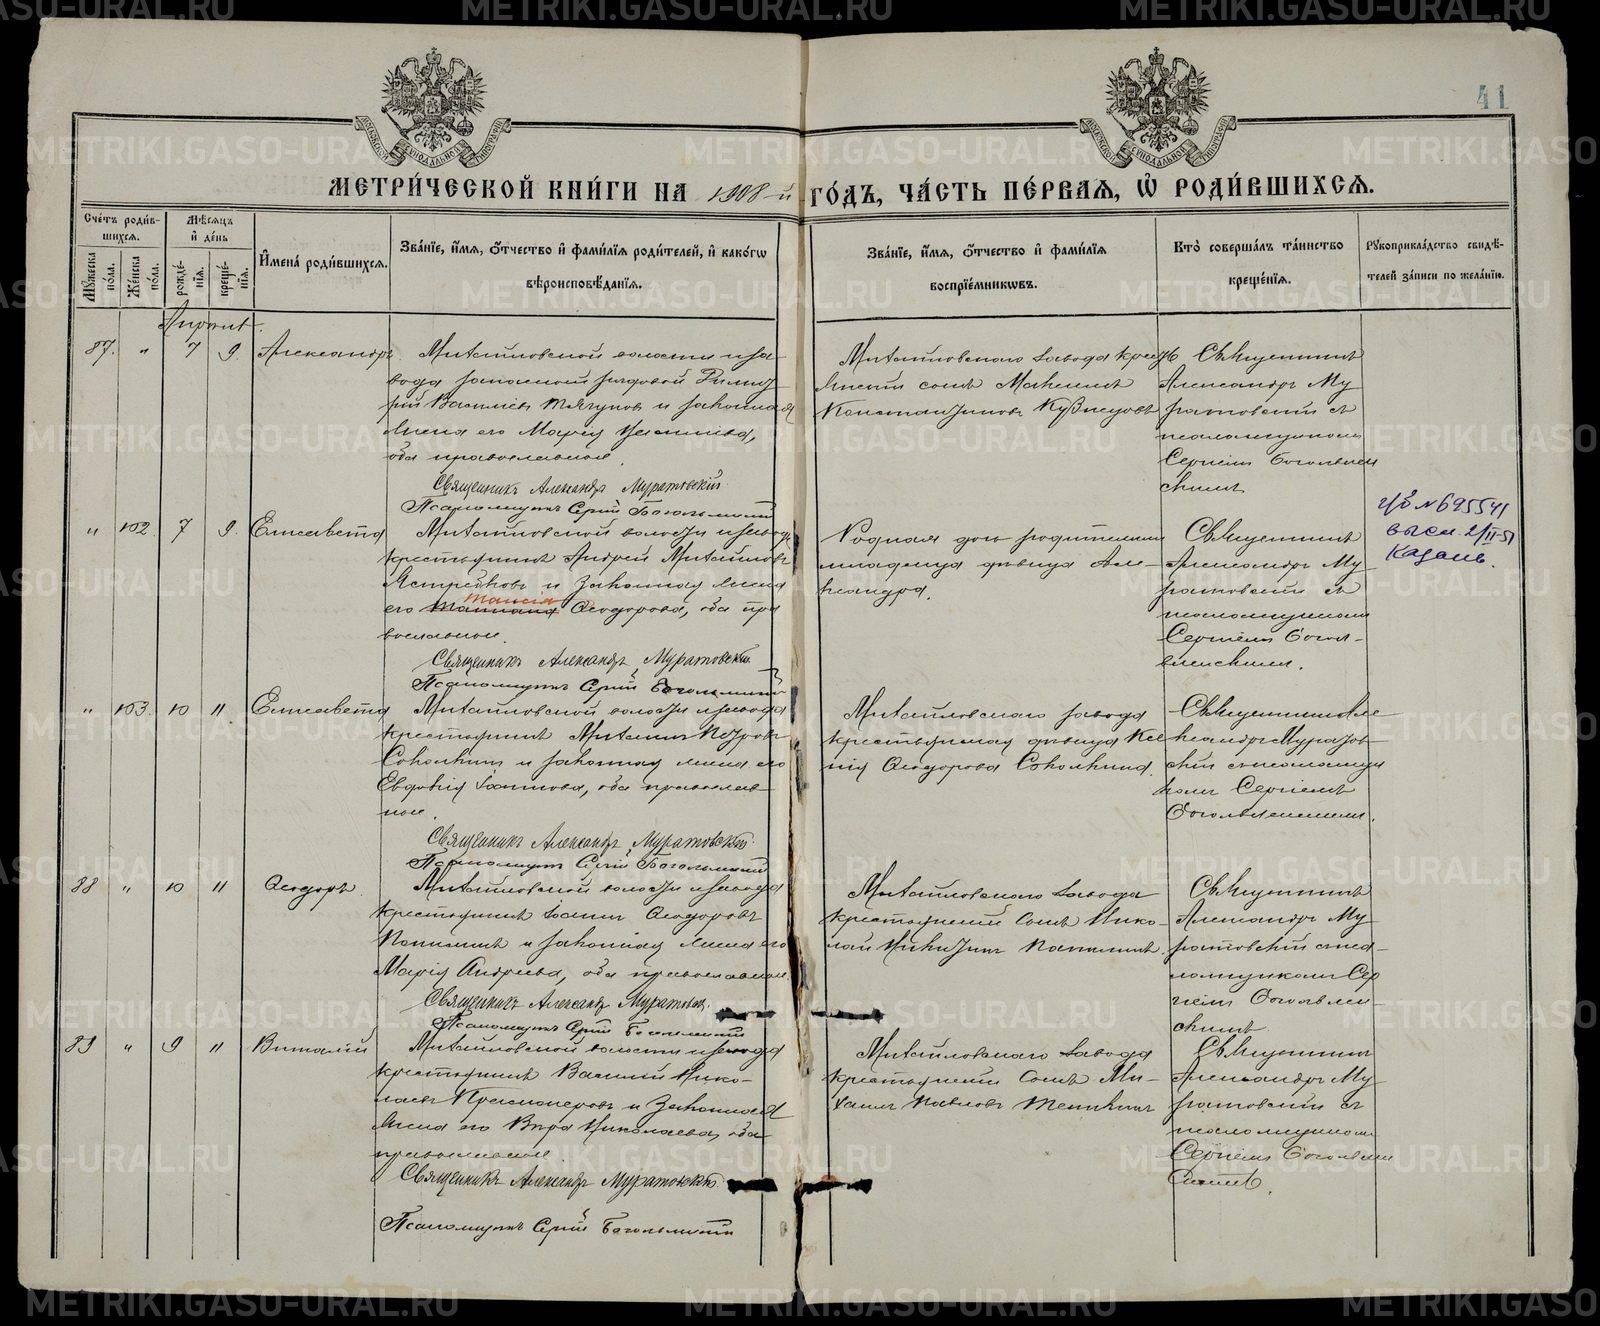 METRIKI.GASO-URAL.RU
41
МОСКОВСКОЙ СѴНОДАЛЬНОЙ ТИПОГРАФІИ
МОСКОВСКОЙ СѴНОДАЛЬНОЙ ТИПОГРАФІИ
МЕТРИ́ЧЕСКОЙ КНИ́ГИ НА 1908-й ГО́ДЪ, ЧА́СТЬ ПЕ́РВАЯ, Ѡ҆ РОДИ́ВШИХСЯ.
Сче́тъ роди́вшихся.
Мꙋ́жеска по́ла.
Же́нска по́ла.
Мѣ́сяцъ и҆ де́нь
рожде́нїя.
креще́нїя.
И҆мена̀ роди́вшихся.
Зва́нїе, и҆́мя, ѻ҆́тчество и҆ фами́лїя роди́телей, и҆ како́гѡ
вѣроисповѣ́данїя.
Зва́нїе, и҆́мя, ѻ҆́тчество и҆ фами́лїя
воспрїе́мникѡвъ.
Кто̀ соверша́лъ та́инство
креще́нїя.
Рꙋкоприкла́дство свидѣ́-
телей за́писи по жела́нїю.
Апрѣль.
87. " 7 9. Александръ.
Михайловской волости и за-
вода запасной рядовой Димит-
рій Васильевъ Тягуновъ и законная
жена его Марія
оба православные.
Священникъ Александръ Муратовскій
Псаломщикъ Сергій
Михайловскаго завода кресть
янскій сынъ Максимъ
Константиновъ Кузнецовъ
Священникъ
Александръ Му
ратовскій съ
псаломщикомъ
Сергіемъ Боголѣпен
скимъ
" 102. 7 9. Елисавета
Михайловской волости и завода
крестьянинъ Андрей Михайловъ
Ястребковъ и законная жена
его Таисія Ѳеодорова, оба пра
вославные.
Священникъ Александръ Муратовскій
Псаломщикъ Сергій
Родная дочь родителей
младенца дѣвица Але-
ксандра.
Священникъ
Александръ Му-
ратовскій съ
псаломщикомъ
Сергіемъ
№695541
высл. 2/II-51
Казань.
" 103. 10 11 Елисавета
Михайловской волости и завода
крестьянинъ Михаилъ Петровъ
Соколкинъ и законная жена его
Евдокія Іоаннова, оба православ-
ные.
Священникъ Александръ Муратовскій
Псаломщикъ Сергій
Михайловскаго завода
крестьянская дѣвица Ксе
нія Ѳеодорова Соколкина.
Священникъ Але
ксандръ Муратов
скій съ псаломщи
комъ Сергіемъ
88 " 10 11 Ѳеодоръ.
Михайловской волости и завода
крестьянинъ Іоаннъ Ѳеодоровъ
и законная жена его
Марія Андреева, оба православные.
Священникъ Александръ Муратовскій
Псаломщикъ Сергій
Михайловскаго завода
крестьянскій сынъ Нико-
лай Никитинъ
Священникъ
Александръ Му
ратовскій съ пса-
ломщикомъ Сер
гіемъ
скимъ
89 " 9 11 Виталій
Михайловской волости и завода
крестьянинъ Василій Нико-
лаевъ Красноперовъ и законная
жена его Вѣра Николаева, оба
православные.
Священникъ Александръ Муратовскій
Псаломщикъ Сергій
Михайловскаго завода
крестьянскій сынъ Ми-
хаилъ Павловъ
Священникъ
Александръ Му
ратовскій съ
псаломщикомъ
Сергіемъ